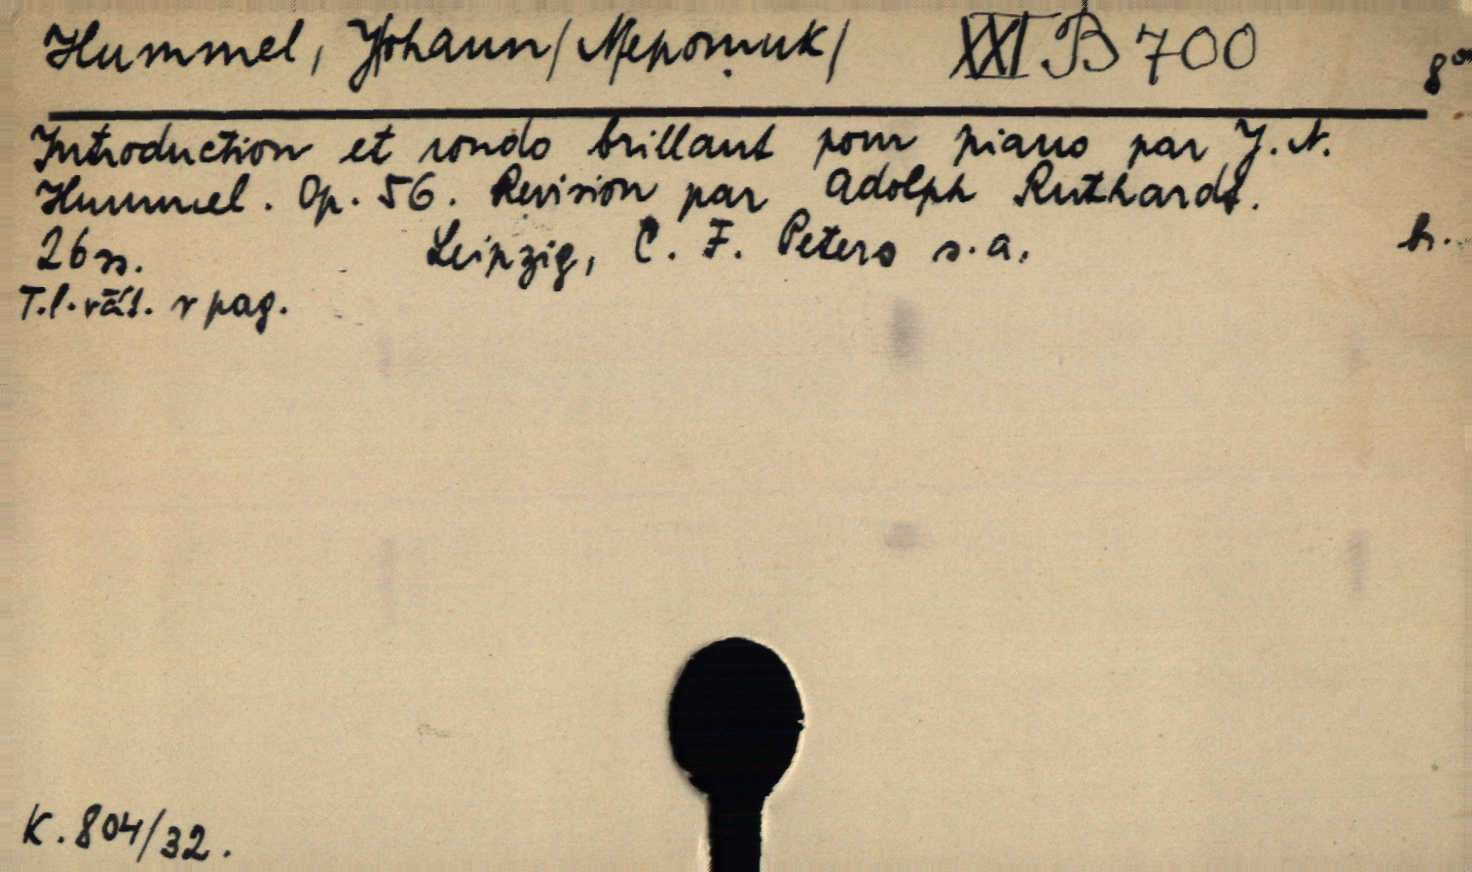 Hummel, Johann/Nepomuk/ XXI B 700 8°
Introduction et rondo brillant pour piano par J. N.
Hummel. Op. 56. Revision par Adolph Ruthardt.
26 s. Leipzig, C. F. Peters s. a. br.
T. l. v pag.
K. 804/32.